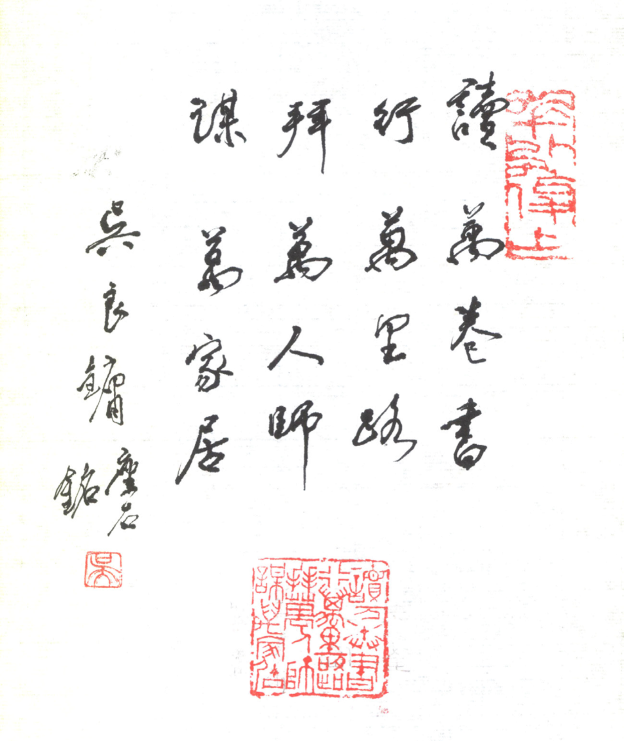 讀萬卷書
行萬里路
拜萬人師
謀萬家居
吳良鏞
座右
銘
吳
讀万卷書
行萬里路
拜萬人師
謀萬家居